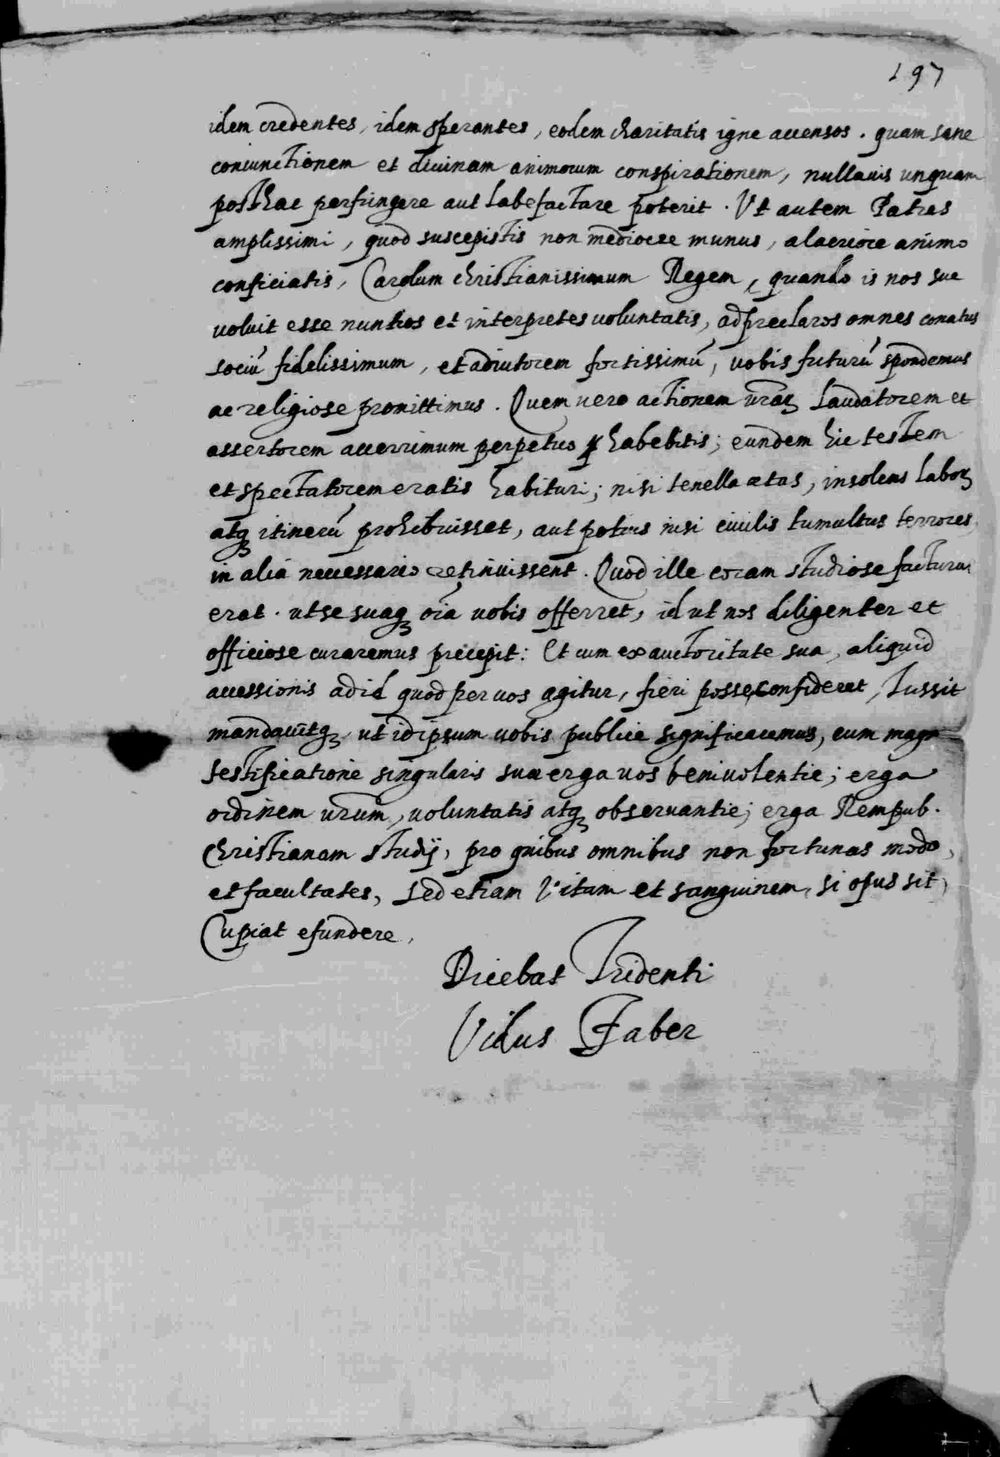 197
idem credentes, idem sperantes, eodem charitatis igne accensos. quam sane
coniunctionem et diuinam animorum conspirationem, nulla uis unquam
posthac perfringere aut labefactare poterit. Ut autem Patres
amplissimi, quod suscepistis non mediocre munus, alacriore animo
conficiatis, Carolum christianissimum Regem, quando is nos sue
voluit esse nuntios et interpretes uoluntatis, ad preclaros omnes conatus
sociũ fidelissimum, et adiutorem fortissimũ, uobis futurũ spondemus
ac religiose promittimus. Quem uero actionem urãꝝ laudatorem et
assertorem acerrimum perpetuo habebitis; eundem hic testem
et spectatorem eratis habituri; nisi tenella ætas, insolens laboꝝ
atqꝫ itinerũ prohibuisset, aut potius nisi ciuilis tumultus terrores
in aliã necessario retinuissent. Quod ille coram studiose facturus
erat. ut se suaqꝫ oĩa uobis offerret, id ut nos diligenter et
officiose curaremus precepit: Et cum ex auctoritate sua, aliquid
accessionis ad id quod per uos agitur, fieri posse confideret, Iussit
mandauitqꝫ ut id ipsum uobis publice significaremus, cum magna
testificatione singularis suæ erga uos beniuolentie; erga
ordinem urum, uoluntatis atqꝫ obseruantie; erga Rempub.
Christianam studij, pro quibus omnibus non fortunas modo,
et facultates, sed etiam Vitam et sanguinem, si opus sit,
Cupiat efundere.
Dicebat Tridenti
Vidus Faber